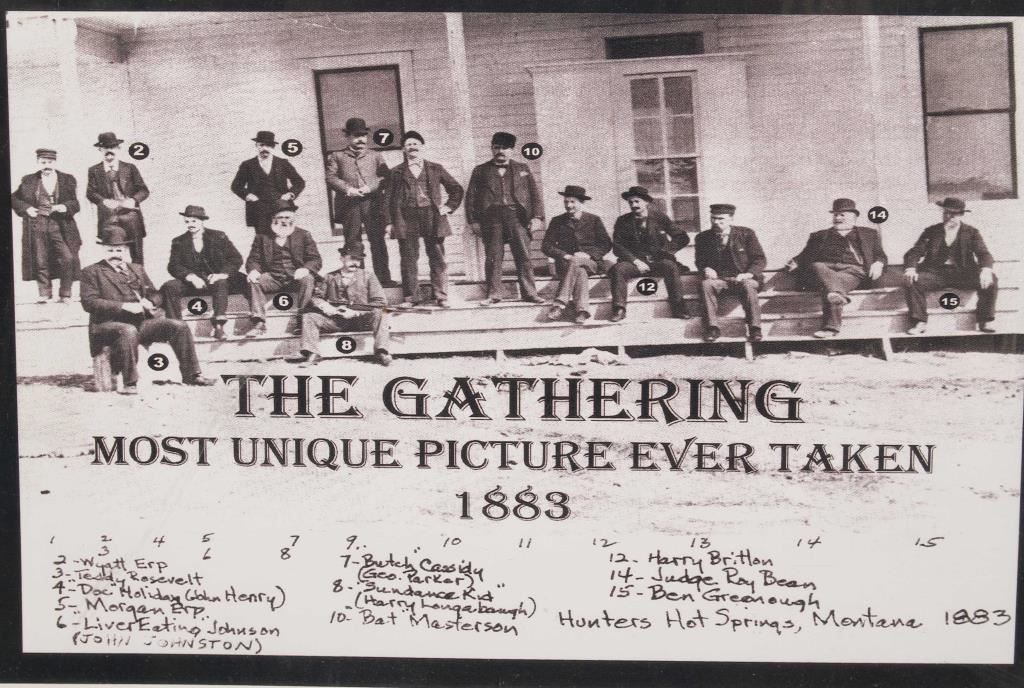 2
5
7
10
14
4
6
12
15
8
3
THE GATHERING
MOST UNIQUE PICTURE EVER TAKEN
1883
1 2 4 5 7 9 10 11 12 13 14 15
3 6 8
2-Wyatt Erp
3-Teddy Rosevelt
4-"Doc" Holiday (John Henry)
5- Morgan Erp
6-Liver Eating Johnson
(JOHN JOHNSTON)
7-Butch Cassidy
(Geo. Parker)
8-"Sundance Kid"
(Harry Longabaugh)
10-Bat Masterson
12-Harry Britton
14-Judge Roy Bean
15-Ben Greenough
Hunters Hot Springs, Montana 1883